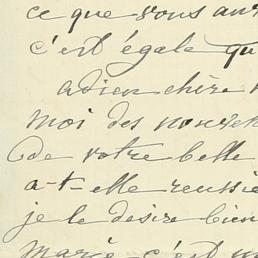 ce que vous aur
c'est égale qu
adieu chère
moi des nouvel
de votre belle
a-t-elle reussie
je le desire bien
marie c'est